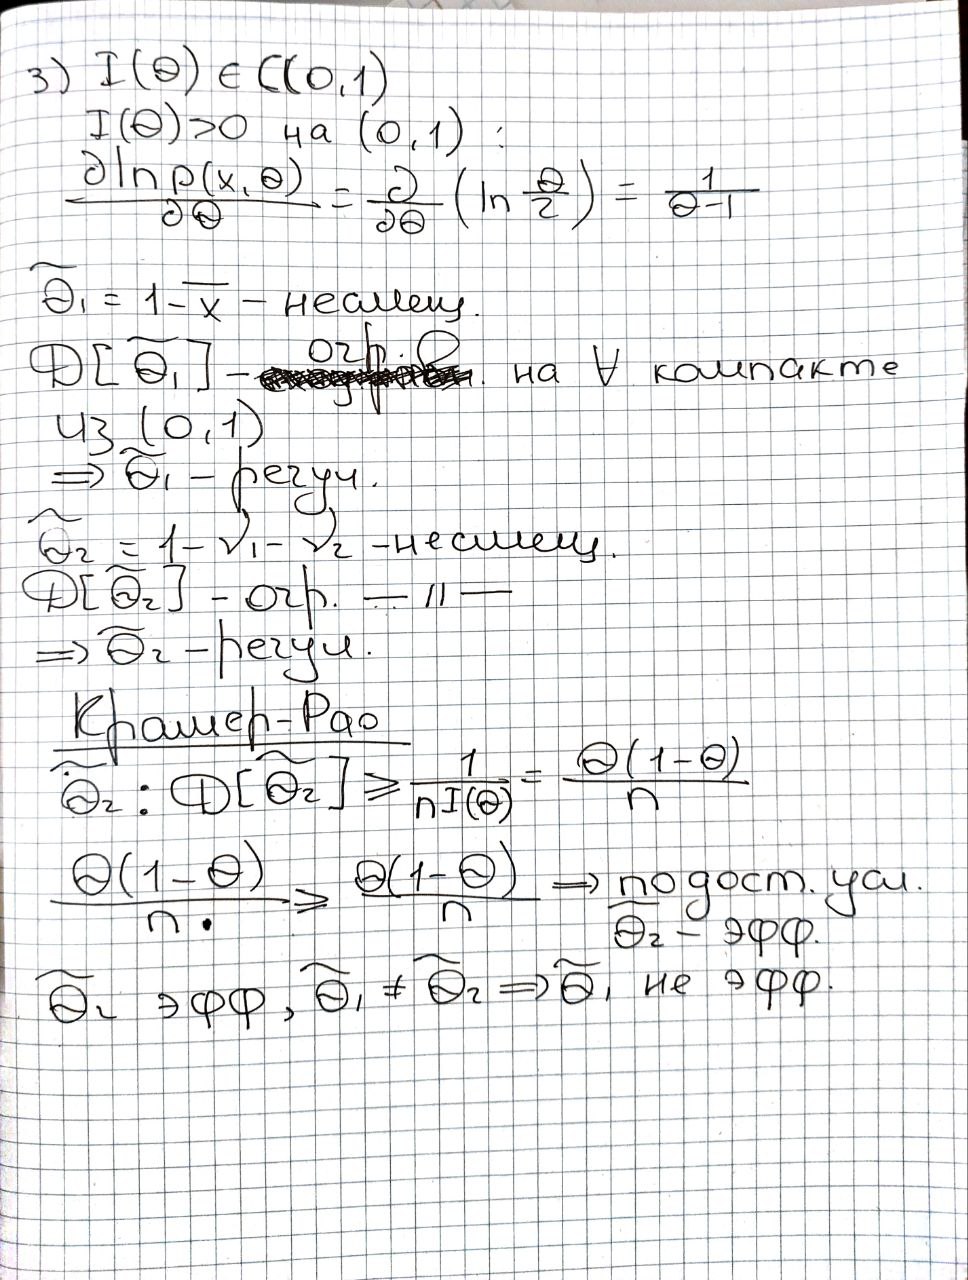 3) I(Θ) ∈ C((0,1)
I(Θ)>0 на (0,1) :
∂ln p(x,Θ)/∂Θ = ∂/∂Θ (ln Θ/2) = 1/(Θ-1)
Θ̃₁ = 1-x̅ - несмещ.
D[Θ̃₁] - огр. на ∀ компакте
из (0,1)
⇒ Θ̃₁ - регул.
Θ̃₂ = 1-ν₁-ν₂ -несмещ.
D[Θ̃₂] - огр. —〃—
⇒ Θ̃₂ -регул.
Крамер-Рао
Θ̃₂ : D[Θ̃₂] ⩾ 1/(nI(Θ)) = Θ(1-Θ)/n
Θ(1-Θ)/n ⩾ Θ(1-Θ)/n ⇒ по дост. усл.
Θ̃₂ - эфф.
Θ̃₂ эфф, Θ̃₁ ≠ Θ̃₂ ⇒ Θ̃₁ не эфф.